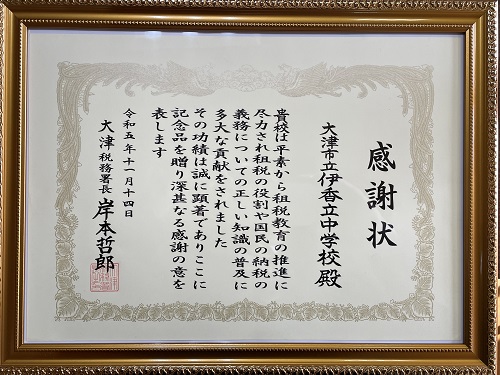 感謝状
大津市立伊香立中学校殿
貴校は平素から租税教育の推進に
尽力され租税の役割や国民の納税の
義務についての正しい知識の普及に
多大な貢献をされました
その功績は誠に顕著でありここに
記念品を贈り深甚なる感謝の意を
表します
令和五年十一月十四日
大津税務署長 岸本哲郎